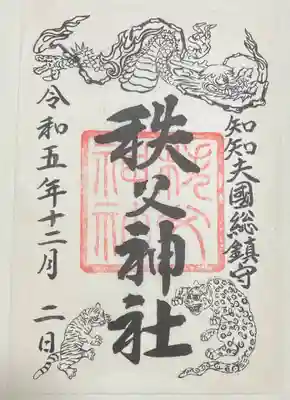 知知夫國総鎮守
秩父神社
令和五年十二月 二日